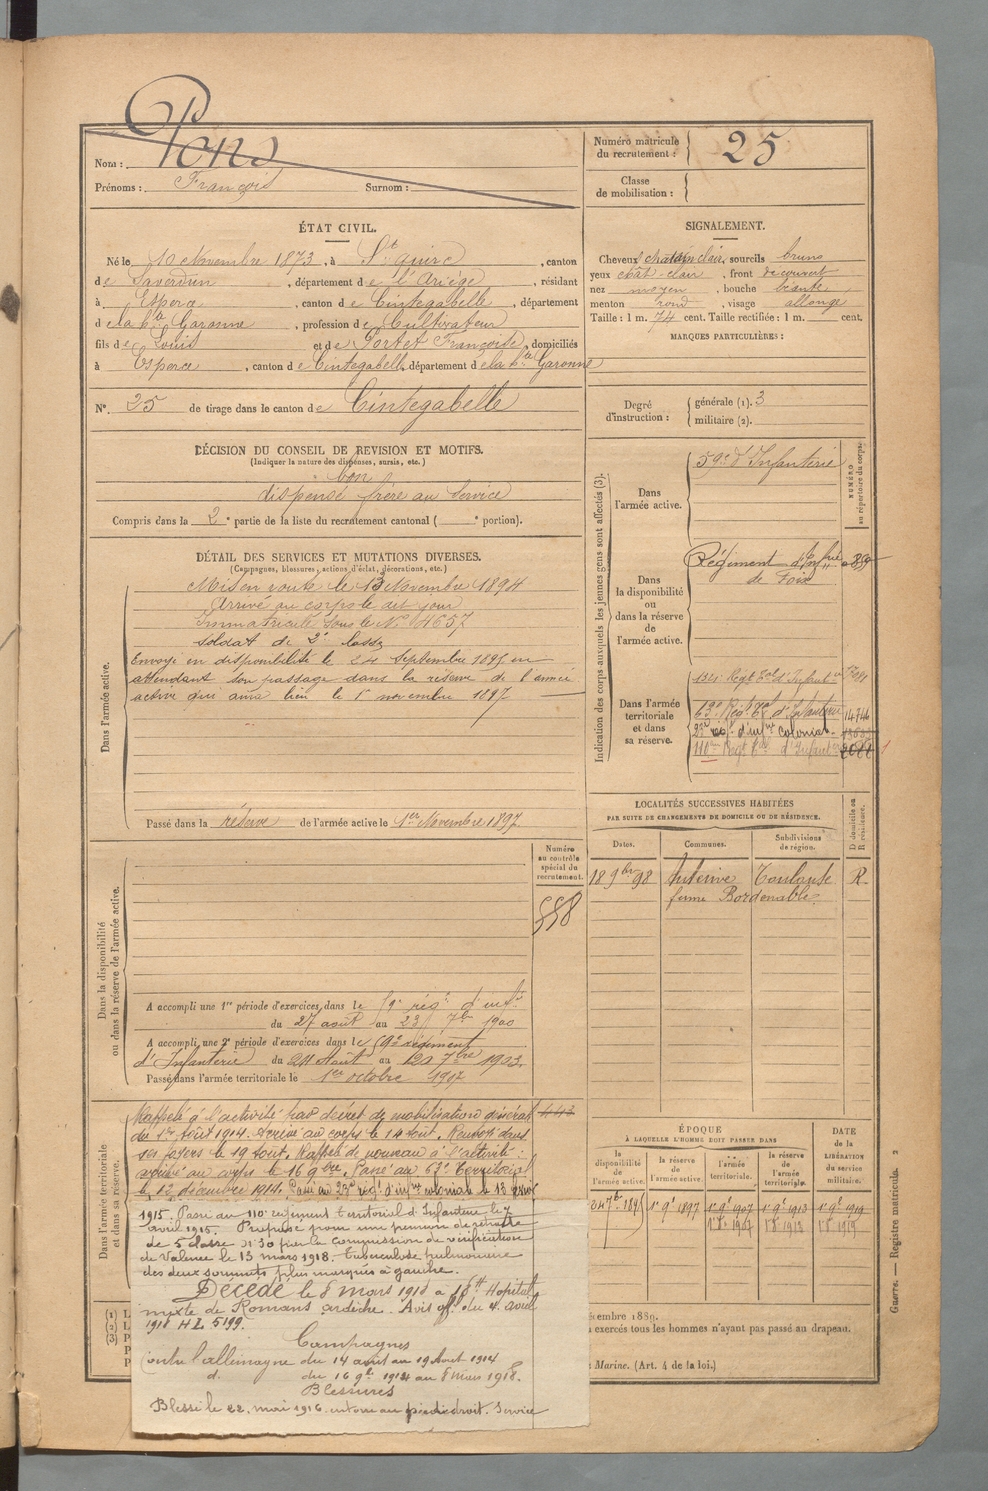 Nom : Pons
Prénoms : François Surnom :
Numéro matricule du recrutement : 25
Classe de mobilisation :
ÉTAT CIVIL.
Né le 10 Novembre 1873, à St Quirc, canton
de Saverdun, département de l'Ariège, résidant
à Esperce, canton de Cintegabelle, département
de la hte Garonne, profession de Cultivateur
fils de Louis et de Portet Françoise, domiciliés
à Esperce, canton de Cintegabelle, département de la hte Garonne
N° 25 de tirage dans le canton de Cintegabelle
SIGNALEMENT.
Cheveux chatain clair, sourcils bruns
yeux chât-clair, front découvert
nez moyen, bouche béante,
menton rond, visage allongé
Taille : 1 m. 74 cent. Taille rectifiée : 1 m. cent.
MARQUES PARTICULIÈRES :
Degré d'instruction : générale (1). 3
militaire (2).
DÉCISION DU CONSEIL DE REVISION ET MOTIFS.
(Indiquer la nature des dispenses, sursis, etc.)
bon
dispensé frère au Service
Compris dans la 2e partie de la liste du recrutement cantonal ( e portion).
DÉTAIL DES SERVICES ET MUTATIONS DIVERSES.
(Campagnes, blessures, actions d'éclat, décorations, etc.)
Dans l'armée active.
Mis en route le 13 Novembre 1894
Arrivé au corps le dit jour
Immatriculé sous le N° 4657
soldat de 2e classe
Envoyé en disponibilité le 24 Septembre 1895 en
attendant son passage dans la réserve de l'armée
active qui aura lieu le 1er novembre 1897
Passé dans la réserve de l'armée active le 1er Novembre 1897.
Indication des corps auxquels les jeunes gens sont affectés (3).
NUMÉRO au répertoire du corps.
Dans l'armée active.
59e d'Infanterie
Dans la disponibilité ou dans la réserve de l'armée active.
Régiment d'Infrie
de Foix
Dans l'armée territoriale et dans sa réserve.
134e Régt Tal d'Infanterie
63e Régt Tal d'Infanterie 14746
23e régt d'infrie colonial
110e Régt Tal d'Infanterie
LOCALITÉS SUCCESSIVES HABITÉES
PAR SUITE DE CHANGEMENTS DE DOMICILE OU DE RÉSIDENCE.
D domicile ou R résidence.
Dates. Communes. Subdivisions de région.
18 9bre 98 Auterive Toulouse R.
ferme Bordenable
Numéro au contrôle spécial du recrutement.
558
Dans la disponibilité ou dans la réserve de l'armée active.
A accompli une 1re période d'exercices dans le 59e régt d'infie
du 27 août au 23 7bre 1900
A accompli une 2e période d'exercices dans le 59e régiment
d'Infanterie du 24 Août au 20 7bre 1903.
Passé dans l'armée territoriale le 1er octobre 1907
Dans l'armée territoriale et dans sa réserve.
Rappelé à l'activité par décret de mobilisation générale
du 1er Août 1914. Arrivé au corps le 14 août. Renvoyé dans
ses foyers le 19 Août. Rappelé de nouveau à l'activité :
arrivé au corps le 16 9bre. Passé au 63e Territorial
le 12 décembre 1914. Passé au 23e régt d'infrie coloniale le 13
1915. Passé au 110e régiment territorial d'Infanterie le 7
avril 1915. Proposé pour une pension de retraite
de 5e classe N° 30 par la commission de vérification
de Valence le 13 mars 1918. Tuberculose pulmonaire
des deux sommets plus marquée à gauche.
Décédé le 8 mars 1918 à Hopital
mixte de Romans ardèche. Avis off. du 4 avril
1918 HL 5199.
Campagnes
contre l'allemagne du 14 août au 19 Août 1914
d. du 16 9bre 1914 au 8 mars 1918.
Blessures
Blessé le 22 mai 1916. entorse au pied droit. Service
ÉPOQUE
À LAQUELLE L'HOMME DOIT PASSER DANS
DATE de la LIBÉRATION du service militaire.
la disponibilité de l'armée active. la réserve de l'armée active. l'armée territoriale. la réserve de l'armée territoriale.
1er 9bre 1897 1er 9bre 1907 1er 9bre 1913 1er 9bre 1919
1er 8bre 1907 1er 8bre 1913 1er 8bre 1919
décembre 1889.
exercés tous les hommes n'ayant pas passé au drapeau.
Marine. (Art. 4 de la loi.)
Guerre. — Registre matricule. 2